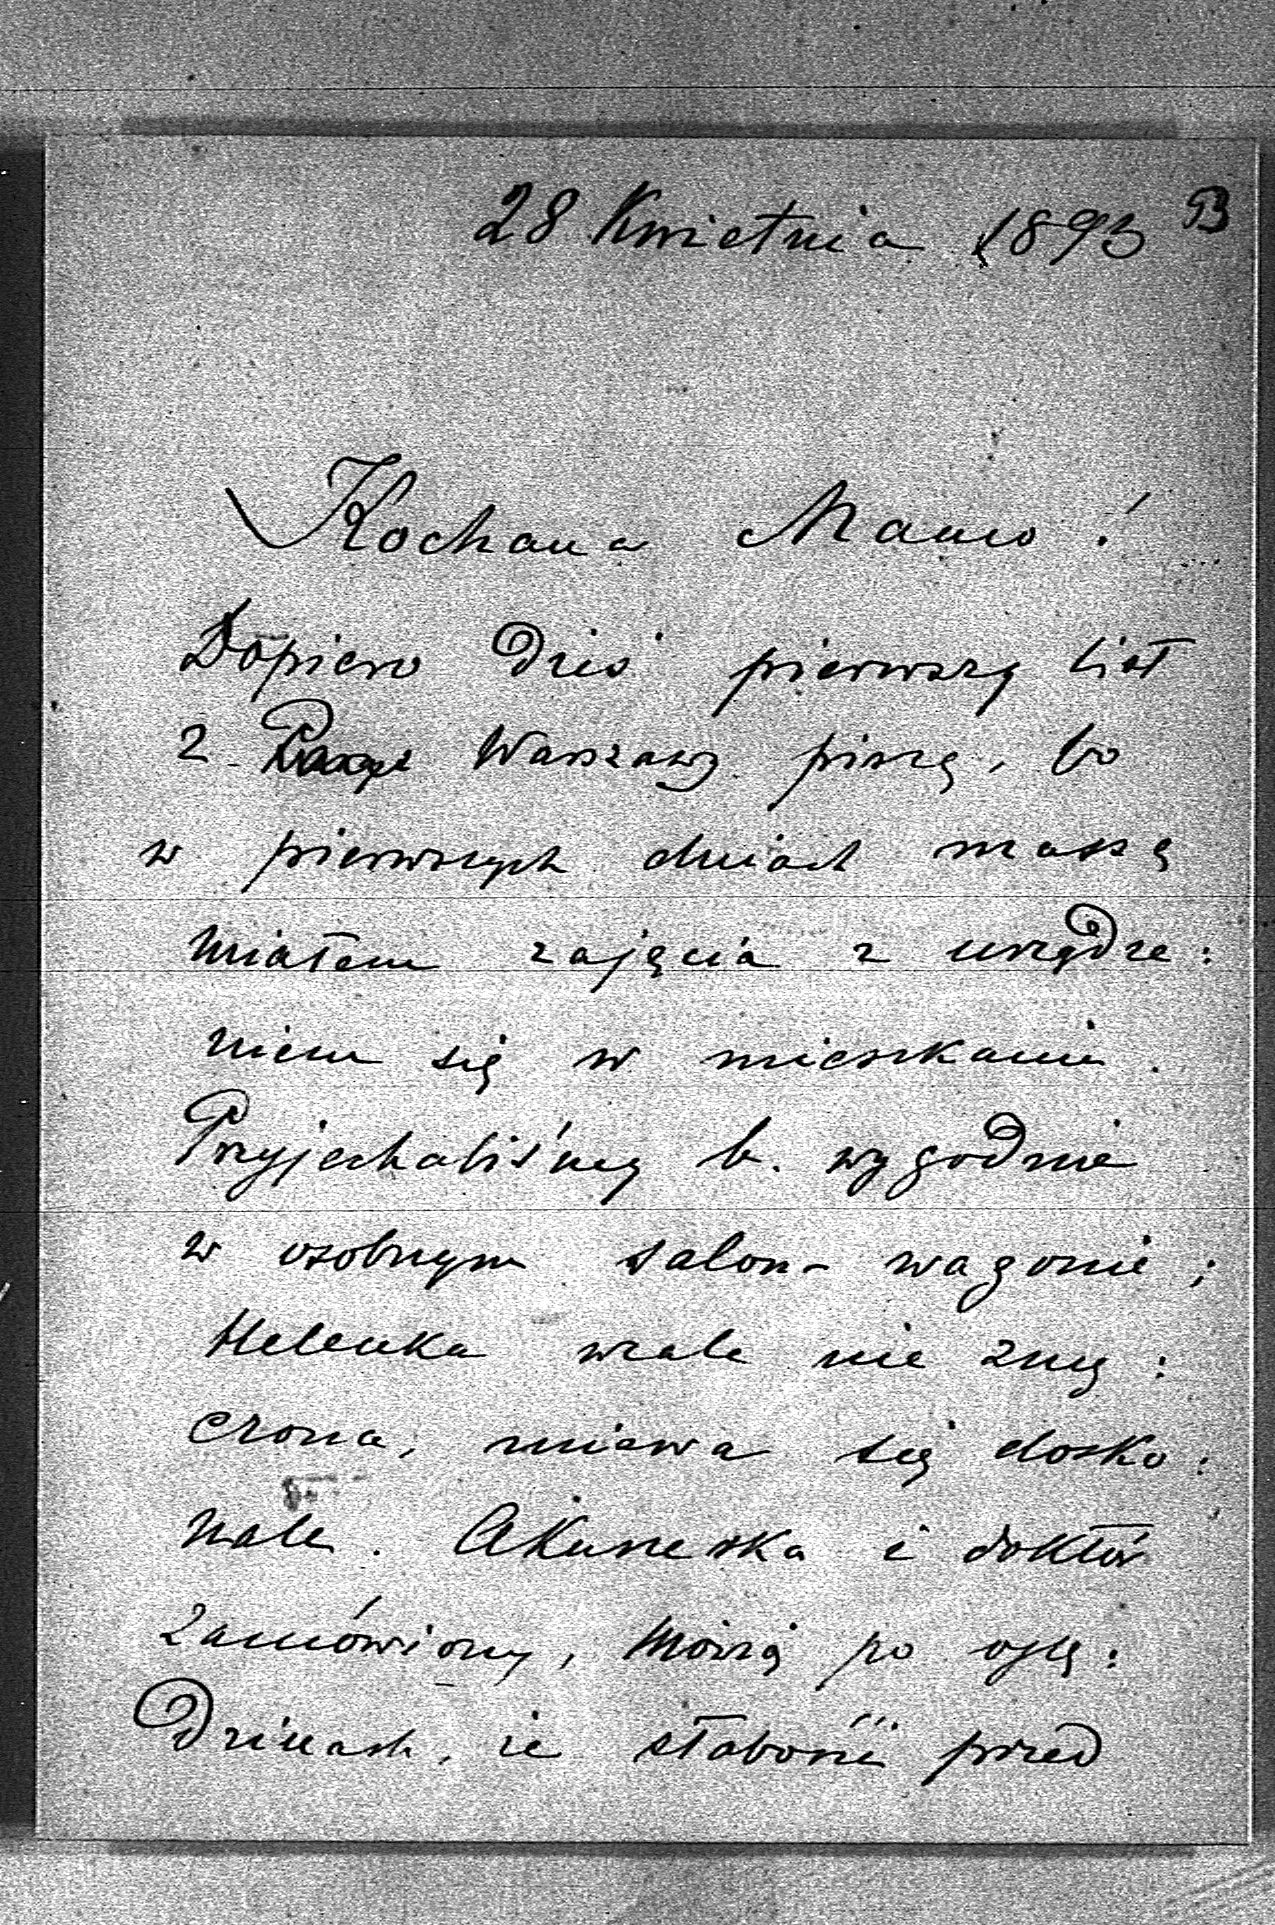 28 Kwietnia 1893 53
Kochana Mamo!
Dopiero dziś pierwszy list
z Warszawy piszę, bo
w pierwszych dniach masę
miałem zajęcia z urządze:
niem się w mieszkaniu.
Przyjechaliśmy b. wygodnie
w osobnym salon-wagonie;
Helenka wcale nie zmę:
czona, miewa się dosko:
nale. Akuszerka i doktór
zamówiony, mówią po oglę:
dzinach, że słabość przed